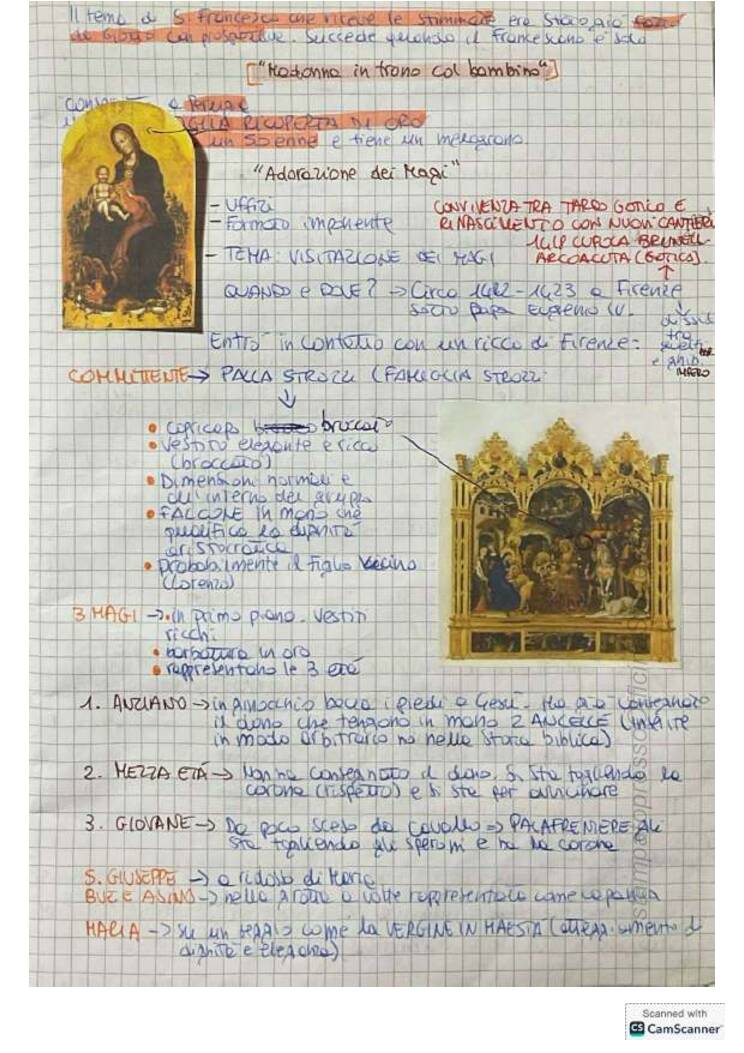 Il tema di S. Francesco che riceve le stimmate era stato già
da Giotto con prospettive. Succede quando il Francescano è solo
"Madonna in trono col bambino"
a Perugia
RICOPERTA DI ORO
un 50enne e tiene un melograno.
"Adorazione dei Magi"
- Uffizi
- Formato imponente
- TEMA: VISITAZIONE DEI MAGI
CONVIVENZA TRA TARDO GOTICO E
RINASCIMENTO CON NUOVI CANTIERI
1418 CUPOLA BRUNELL.
ARCOACUTA (GOTICO).
QUANDO e DOVE? → Circa 1422-1423 a Firenze
sotto papa Eugenio IV.
Entrò in contatto con un ricco di Firenze:
tra
e ghib.
IMPERO
COMMITTENTE → PALLA STROZZI (FAMIGLIA STROZZI
• copricapo broccato
• vestito elegante e ricco
(broccato)
• Dimensioni normali e
all'interno del gruppo
• FALCONE in mano che
qualifica la dignità
aristocratica
• probabilmente il figlio vicino
(Lorenzo)
3 MAGI → • in primo piano. Vestiti
ricchi
• barbatura in oro
• rappresentano le 3 età
1. ANZIANO → in ginocchio bacia i piedi a Gesù. Ha già consegnato
il dono che tengono in mano 2 ANCELLE (inserite
in modo arbitrario no nella storia biblica)
2. MEZZA ETÀ → Non ha consegnato il dono. Si sta togliendo la
corona (rispetto) e si sta per avvicinare
3. GIOVANE → Da poco sceso da cavallo => PALAFRENIERE gli
sta togliendo gli speroni e ha la corona
S. GIUSEPPE → a ridosso di Maria
BUE E ASINO → nella grotta a volte rappresentata come capanna
MARIA → su un seggio come la VERGINE IN MAESTÀ (atteggiamento di
dignità e eleganza)
Scanned with
CS CamScanner